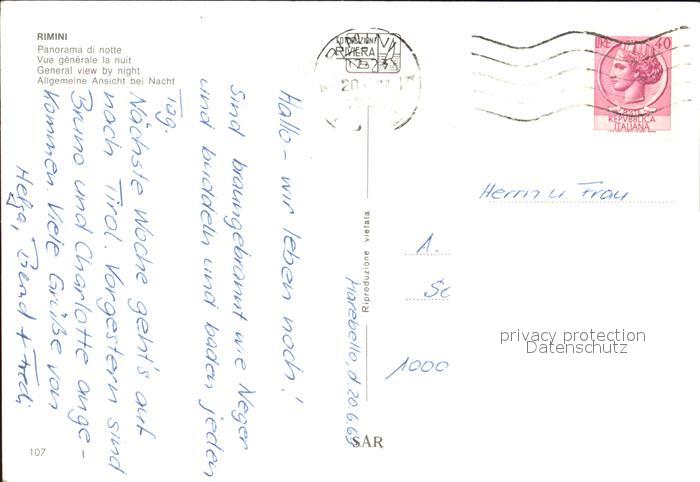 RIMINI
Panorama di notte
Vue générale la nuit
General view by night
Allgemeine Ansicht bei Nacht
Marebello, d. 20.6.69
Hallo - wir leben noch!
Sind braungebrannt wie Neger
und buddeln und baden jeden
Tag.
Nächste Woche geht's auf
nach Tirol. Vorgestern sind
Bruno und Charlotte ange-
kommen. Viele Grüße von
Helga, Bernd + Fredi
107
RIMINI
RIVIERA
20
LIRE 40
POSTE
REPVBBLICA
ITALIANA
Herrn u Frau
A.
Sc
1000
privacy protection
Datenschutz
Riproduzione vietata
SAR